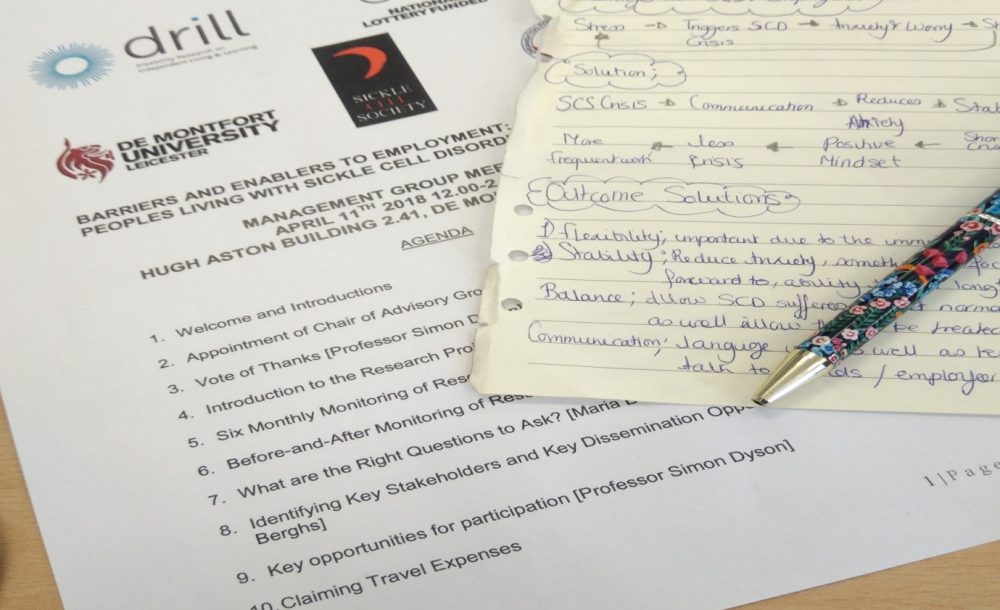 NATIONAL
LOTTERY FUNDED
drill
Disability Research on
Independent Living & Learning
SICKLE
CELL
SOCIETY
DE MONTFORT
UNIVERSITY
LEICESTER
BARRIERS AND ENABLERS TO EMPLOYMENT:
PEOPLES LIVING WITH SICKLE CELL DISORD
MANAGEMENT GROUP MEE
APRIL 11TH 2018 12.00-2
HUGH ASTON BUILDING 2.41, DE MO
AGENDA
1. Welcome and Introductions
2. Appointment of Chair of Advisory Gro
3. Vote of Thanks [Professor Simon D
4. Introduction to the Research Pro
5. Six Monthly Monitoring of Res
6. Before-and-After Monitoring of Res
7. What are the Right Questions to Ask? [Maria
8. Identifying Key Stakeholders and Key Dissemination Opp
Berghs]
9. Key opportunities for participation [Professor Simon Dyson]
10. Claiming Travel Expenses
1 | Page
Stress → Triggers SCD → Anxiety & Worry → St
Crisis
Solution;
SCS Crisis → Communication → Reduces → Stab
Anxiety
More ← less ← Positive ← Shor
frequent work Crisis Mindset Crisis
Outcome Solutions
1) flexibility; important due to the
Stability; Reduce Anxiety, someth
forward to, ability long
Balance; allow SCD suffere norma
as well allow be treated
Communication; languge well as
talk to ds / employer